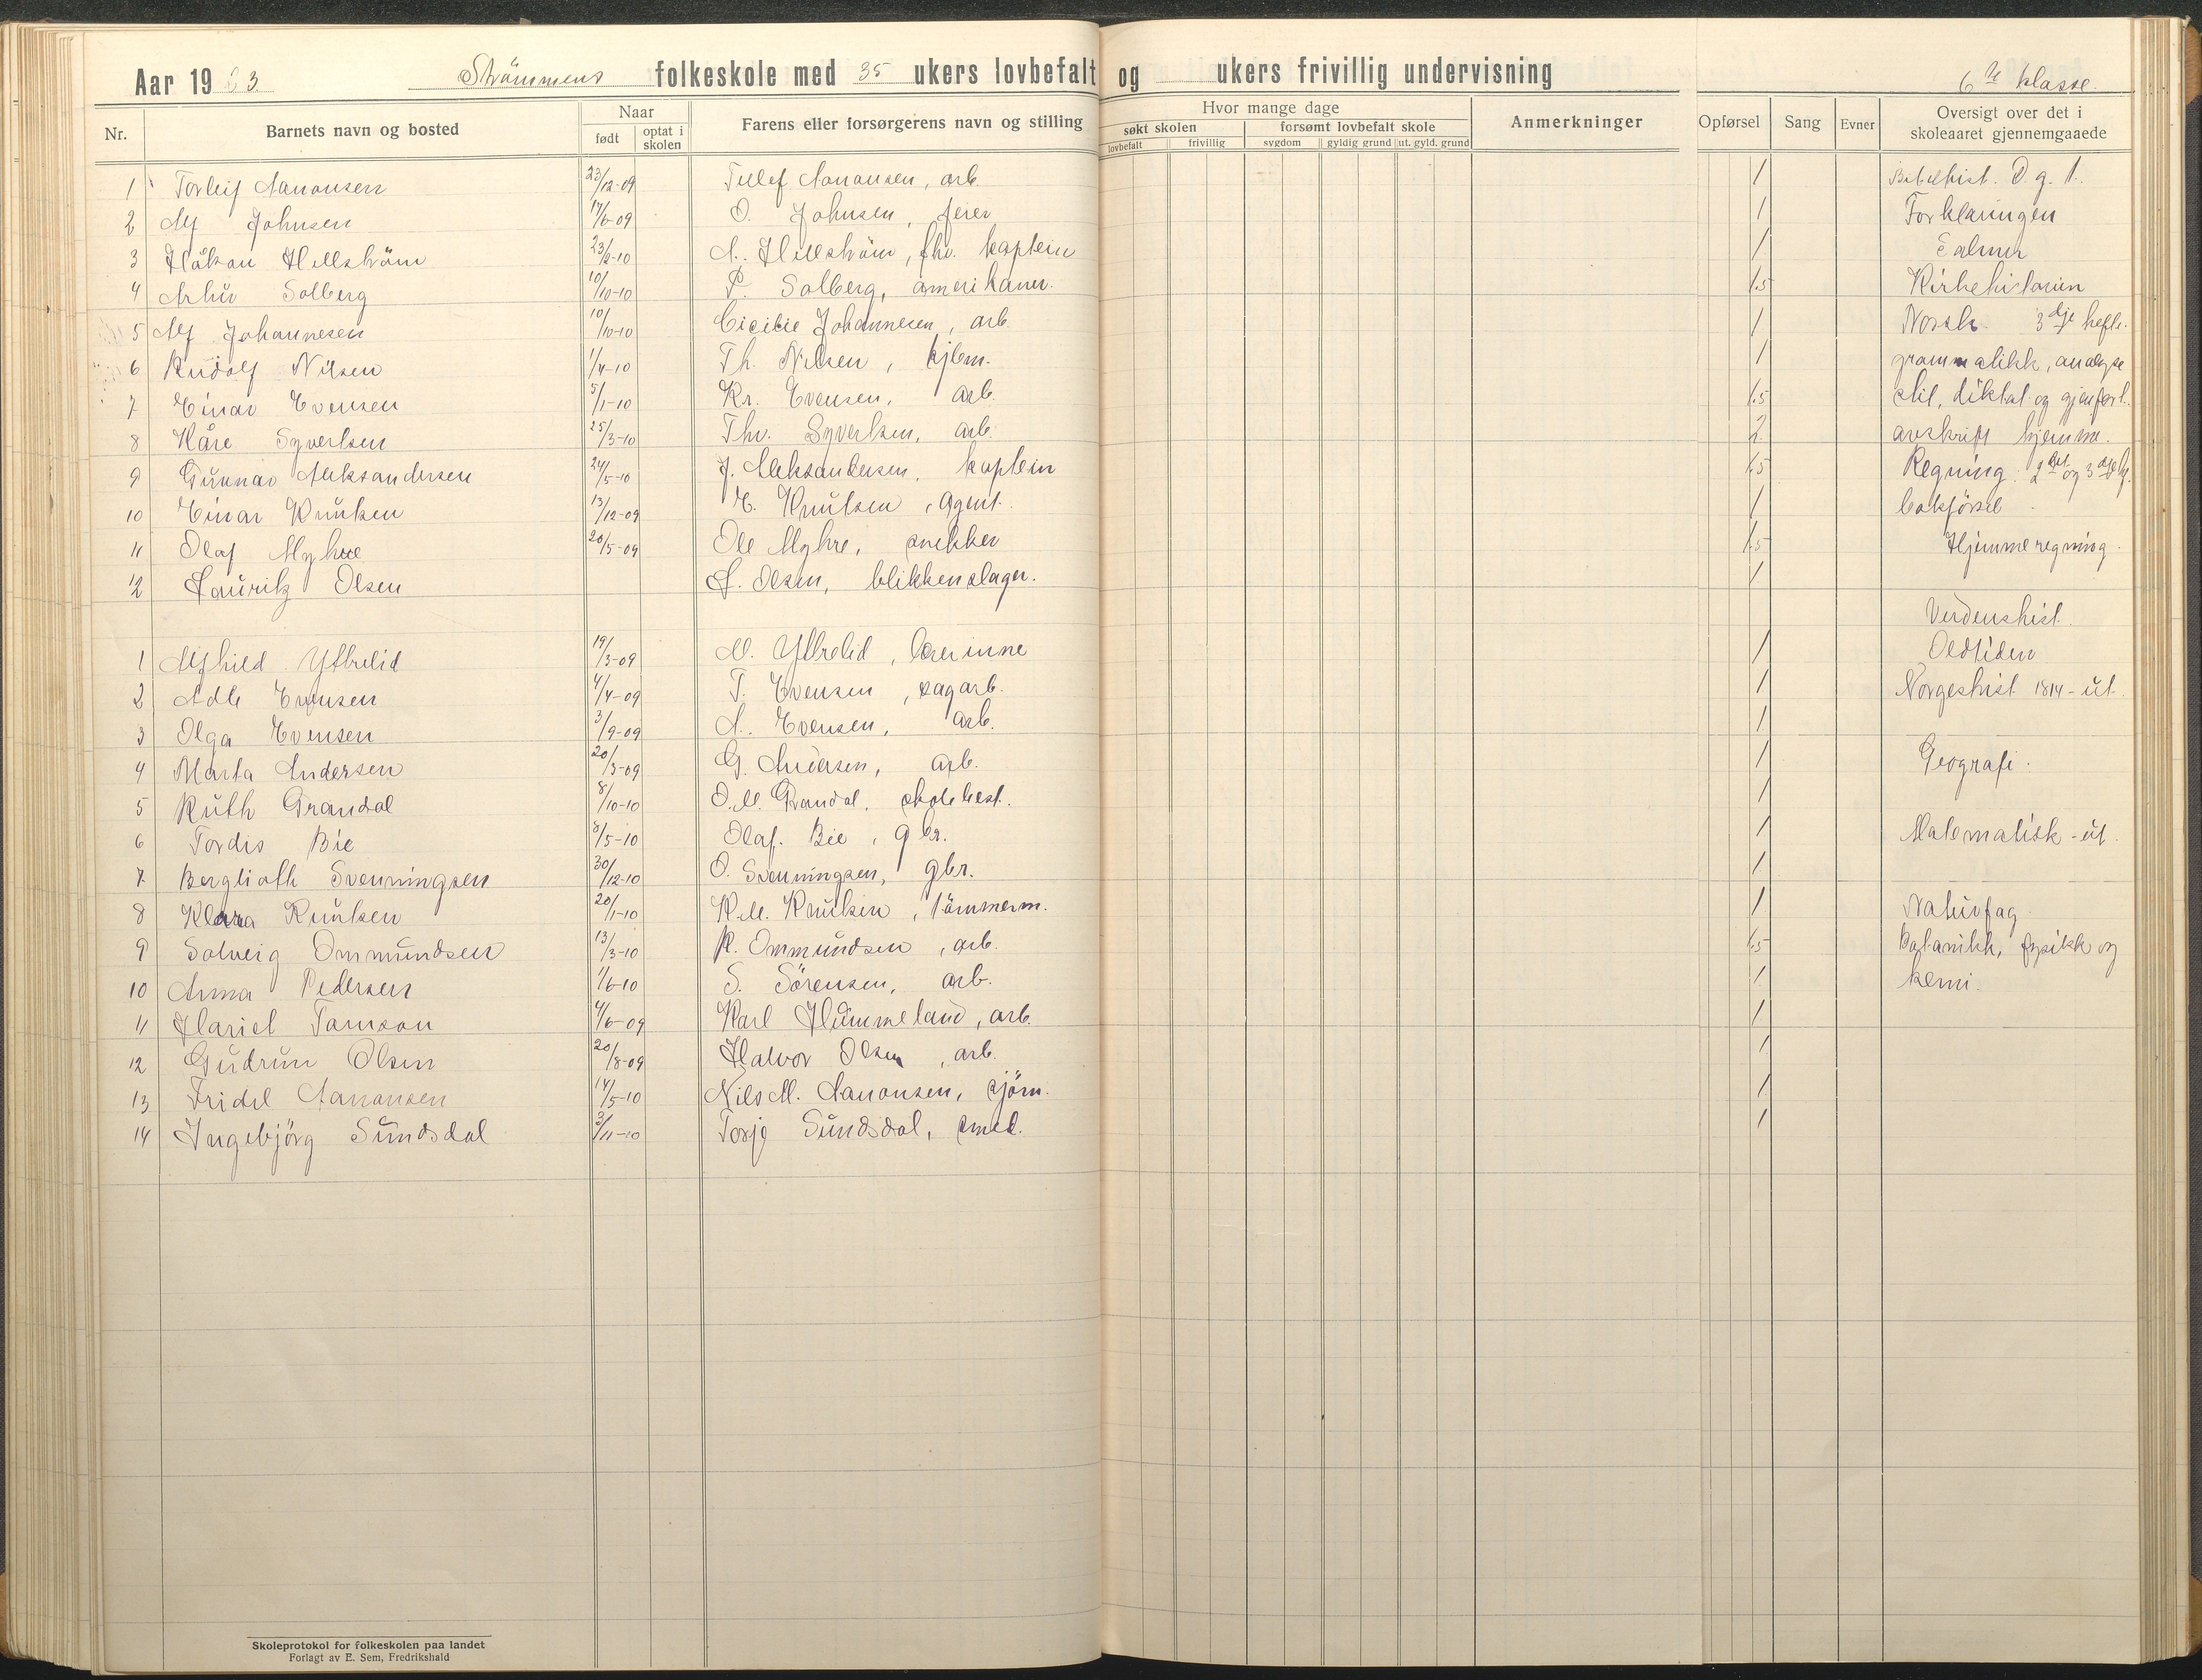 Aar 1923 Strömmens folkeskole med 35 ukers lovbefalt og ukers frivillig undervisning 6te klasse.
Nr. Barnets navn og bosted Naar født optat i skolen Farens eller forsørgerens navn og stilling Hvor mange dage søkt skolen lovbefalt frivillig forsømt lovbefalt skole sygdom gyldig grund ut. gyld. grund Anmerkninger Opførsel Sang Evner Oversigt over det i skoleaaret gjennemgaaede
1 Torleif Aanonsen 23/12-09 Tellef Aanonsen, arb. 1 Bibelhist. D. g. t.
2 Alf Johnsen 17/6-09 O. Johnsen, feier 1 Forklaringen
3 Håkon Hellström 23/2-10 A. Hellström, fhv. kaptein 1 Salmer
4 Arhur Solberg 10/10-10 P. Solberg, amerikaner. 1.5 Kirkehistorien
5 Alf Johannesen 10/10-10 Cicilie Johannesen, arb. 1 Norsk. 3dje hefte.
6 Rudolf Nilsen 1/4-10 Th. Nilsen, kjlm. 1 grammatikk, analyse
7 Einar Evensen 5/1-10 Kr. Evensen, arb. 1.5 stil, diktat og gjenfort.
8 Kåre Syvertsen 25/3-10 Thv. Syvertsen, arb. 2 avskrift hjemme.
9 Gunnar Aleksandersen 24/5-10 J. Aleksandersen, kaptein 1.5 Regning. 2det og 3dje h.
10 Einar Knutsen 13/12-09 E. Knutsen, agent. 1 bokførsel
11 Olaf Myhre 20/5-09 Ole Myhre, snekker 1.5 Hjemmeregning.
12 Lauritz Olsen L. Olsen, blikkenslager. 1
Verdenshist.
1 Alfhild Yttrelid 19/3-09 M. Yttrelid, lærerinne 1 Oldtiden
2 Adle Evensen 4/4-09 T. Evensen, sagarb. 1 Norgeshist 1814 - ut.
3 Olga Evensen 3/9-09 A. Evensen, arb. 1
4 Marta Andersen 20/3-09 G. Andersen, arb. 1 Geografi.
5 Ruth Grandal 8/10-10 O. M. Grandal, skolebest. 1
6 Tordis Bie 8/5-10 Olaf. Bie, gbr. 1 Matematisk - ut.
7 Bergljoth Svenningsen 30/12-10 O. Svenningsen, gbr. 1
8 Klara Knutsen 20/1-10 K. M. Knutsen, tömmerm. 1 Naturfag.
9 Solveig Ommundsen 13/3-10 R. Ommundsen, arb. 1.5 Botanikk, fysikk og
10 Anna Pedersen 1/6-10 S. Sörensen, arb. 1 kemi.
11 Hariet Tamson 4/6-09 Karl Hummeland, arb. 1
12 Gudrun Olsen 20/8-09 Halvor Olsen, arb. 1
13 Fridel Aanonsen 14/5-10 Nils M. Aanonsen, sjöm. 1
14 Ingebjörg Sundsdal 3/11-10 Torje Sundsdal, smed. 1
Skoleprotokol for folkeskolen paa landet
Forlagt av E. Sem, Fredrikshald